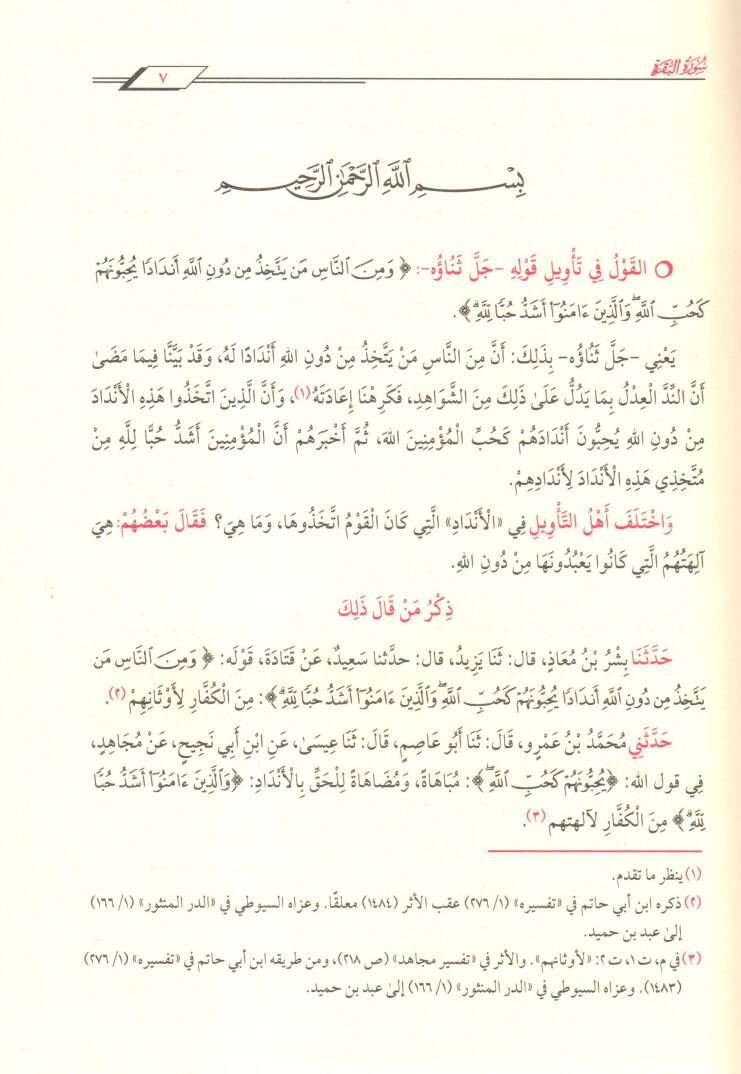 سُورَةُ البَقَرَةِ
٧
بِسْمِ ٱللَّهِ ٱلرَّحْمَٰنِ ٱلرَّحِيمِ
القَوْلُ فِي تَأْوِيلِ قَوْلِهِ -جَلَّ ثَنَاؤُه-: ﴿ وَمِنَ ٱلنَّاسِ مَن يَتَّخِذُ مِن دُونِ ٱللَّهِ أَندَادًا يُحِبُّونَهُمْ
كَحُبِّ ٱللَّهِۖ وَٱلَّذِينَ ءَامَنُوٓا۟ أَشَدُّ حُبًّا لِّلَّهِۗ ﴾.
يَعْنِي -جَلَّ ثَنَاؤُه- بِذَلِكَ: أَنَّ مِنَ النَّاسِ مَنْ يَتَّخِذُ مِنْ دُونِ اللهِ أَنْدَادًا لَهُ، وَقَدْ بَيَّنَّا فِيمَا مَضَىٰ
أَنَّ النِّدَّ الْعِدْلُ بِمَا يَدُلُّ عَلَىٰ ذَلِكَ مِنَ الشَّوَاهِدِ، فَكَرِهْنَا إِعَادَتَهُ(١)، وَأَنَّ الَّذِينَ اتَّخَذُوا هَذِهِ الْأَنْدَادَ
مِنْ دُونِ اللهِ يُحِبُّونَ أَنْدَادَهُمْ كَحُبِّ الْمُؤْمِنِينَ اللهَ، ثُمَّ أَخْبَرَهُمْ أَنَّ الْمُؤْمِنِينَ أَشَدُّ حُبًّا لِلَّهِ مِنْ
مُتَّخِذِي هَذِهِ الْأَنْدَادَ لِأَنْدَادِهِمْ.
وَاخْتَلَفَ أَهْلُ التَّأْوِيلِ فِي «الْأَنْدَادِ» الَّتِي كَانَ الْقَوْمُ اتَّخَذُوهَا، وَمَا هِيَ؟ فَقَالَ بَعْضُهُمْ: هِيَ
آلِهَتُهُمُ الَّتِي كَانُوا يَعْبُدُونَهَا مِنْ دُونِ اللهِ.
ذِكْرُ مَنْ قَالَ ذَلِكَ
حَدَّثَنَا بِشْرُ بْنُ مُعَاذٍ، قال: ثَنَا يَزِيدُ، قال: حدَّثنا سَعِيدٌ، عَنْ قَتَادَةَ، قَوْلَه: ﴿ وَمِنَ ٱلنَّاسِ مَن
يَتَّخِذُ مِن دُونِ ٱللَّهِ أَندَادًا يُحِبُّونَهُمْ كَحُبِّ ٱللَّهِۖ وَٱلَّذِينَ ءَامَنُوٓا۟ أَشَدُّ حُبًّا لِّلَّهِۗ ﴾: مِنَ الْكُفَّارِ لِأَوْثَانِهِمْ(٢).
حَدَّثَنِي مُحَمَّدُ بْنُ عَمْرٍو، قَالَ: ثَنَا أَبُو عَاصِمٍ، قَالَ: ثَنَا عِيسَىٰ، عَنِ ابْنِ أَبِي نَجِيحٍ، عَنْ مُجَاهِدٍ،
فِي قول الله: ﴿يُحِبُّونَهُمْ كَحُبِّ ٱللَّهِۖ ﴾: مُبَاهَاةً، وَمُضَاهَاةً لِلْحَقِّ بِالْأَنْدَادِ: ﴿وَٱلَّذِينَ ءَامَنُوٓا۟ أَشَدُّ حُبًّا
لِّلَّهِۗ﴾ مِنَ الْكُفَّارِ لآلهتهم(٣).
(١) ينظر ما تقدم.
(٢) ذكره ابن أبي حاتم في «تفسيره» (١/ ٢٧٦) عقب الأثر (١٤٨٤) معلقًا. وعزاه السيوطي في «الدر المنثور» (١/ ١٦٦)
إلىٰ عبد بن حميد.
(٣) في م، ت ١، ت ٢: «لأوثانهم». والأثر في «تفسير مجاهد» (ص ٢١٨)، ومن طريقه ابن أبي حاتم في «تفسيره» (١/ ٢٧٦)
(١٤٨٣). وعزاه السيوطي في «الدر المنثور» (١/ ١٦٦) إلىٰ عبد بن حميد.